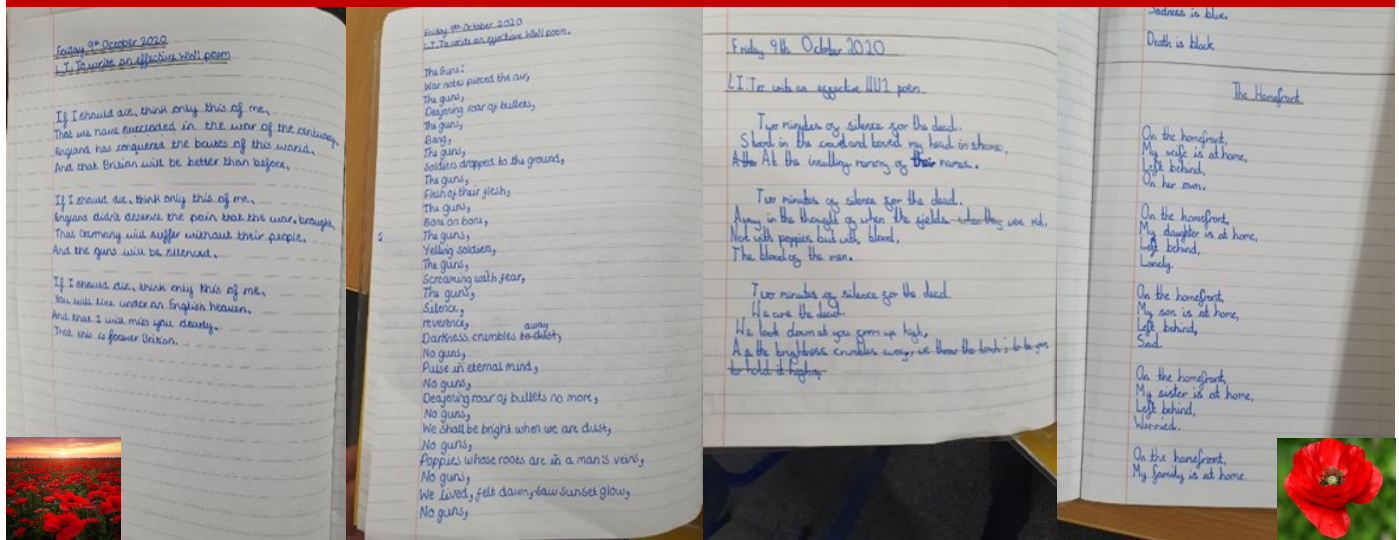 Friday 9th October 2020
L.I. To write an effective WW1 poem
If I should die, think only this of me,
That we have succeeded in the war of the century,
England has conquered the boutes of this world,
And that Britian will be better than before.
If I should die, think only this of me,
England didn't deserve the pain that the war, brought,
That Germany will suffer without their people,
And the guns will be silenced.
If I should die, think only this of me,
You will live under an English heaven,
And that I will miss you dearly,
That this is forever Britian.
Friday 9th October 2020
L.I. To write an effective WW1 poem.
The Guns:
War notes pierced the air,
The guns,
Deafening roar of bullets,
The guns,
Bang,
The guns,
Soldiers dropped to the ground,
The guns,
Flesh of their flesh,
The guns,
Bone on bone,
The guns,
Yelling soldiers,
The guns,
Screaming with fear,
The guns,
Silence,
reverence,
Darkness crumbles to dust, away
No guns,
Pulse in eternal mind,
No guns,
Deafening roar of bullets no more,
No guns,
We shall be bright when we are dust,
No guns,
Poppies whose roots are in a man's veins,
No guns,
We lived, felt dawn, saw sunset glow,
No guns,
Friday 9th October 2020
L.I: To write an effective WW1 poem
Two minutes of silence for the dead.
Stood in the crowd and bowed my head in shame,
At the insulting naming of their names.
Two minutes of silence for the dead.
Away in the thought of when the fields when they were red.
Not with poppies but with blood,
The blood of the men.
Two minutes of silence for the dead
We are the dead.
We look down at you from up high,
As the brightness crumbles away, we throw the torch; to be yours
to hold it high,
Sadness is blue.
Death is black.
The Homefront
On the homefront,
My wife is at home,
Left behind,
On her own.
On the homefront,
My daughter is at home,
Left behind,
Lonely.
On the homefront,
My son is at home,
Left behind,
Sad.
On the homefront,
My sister is at home,
Left behind,
Worried.
On the homefront,
My family is at home.